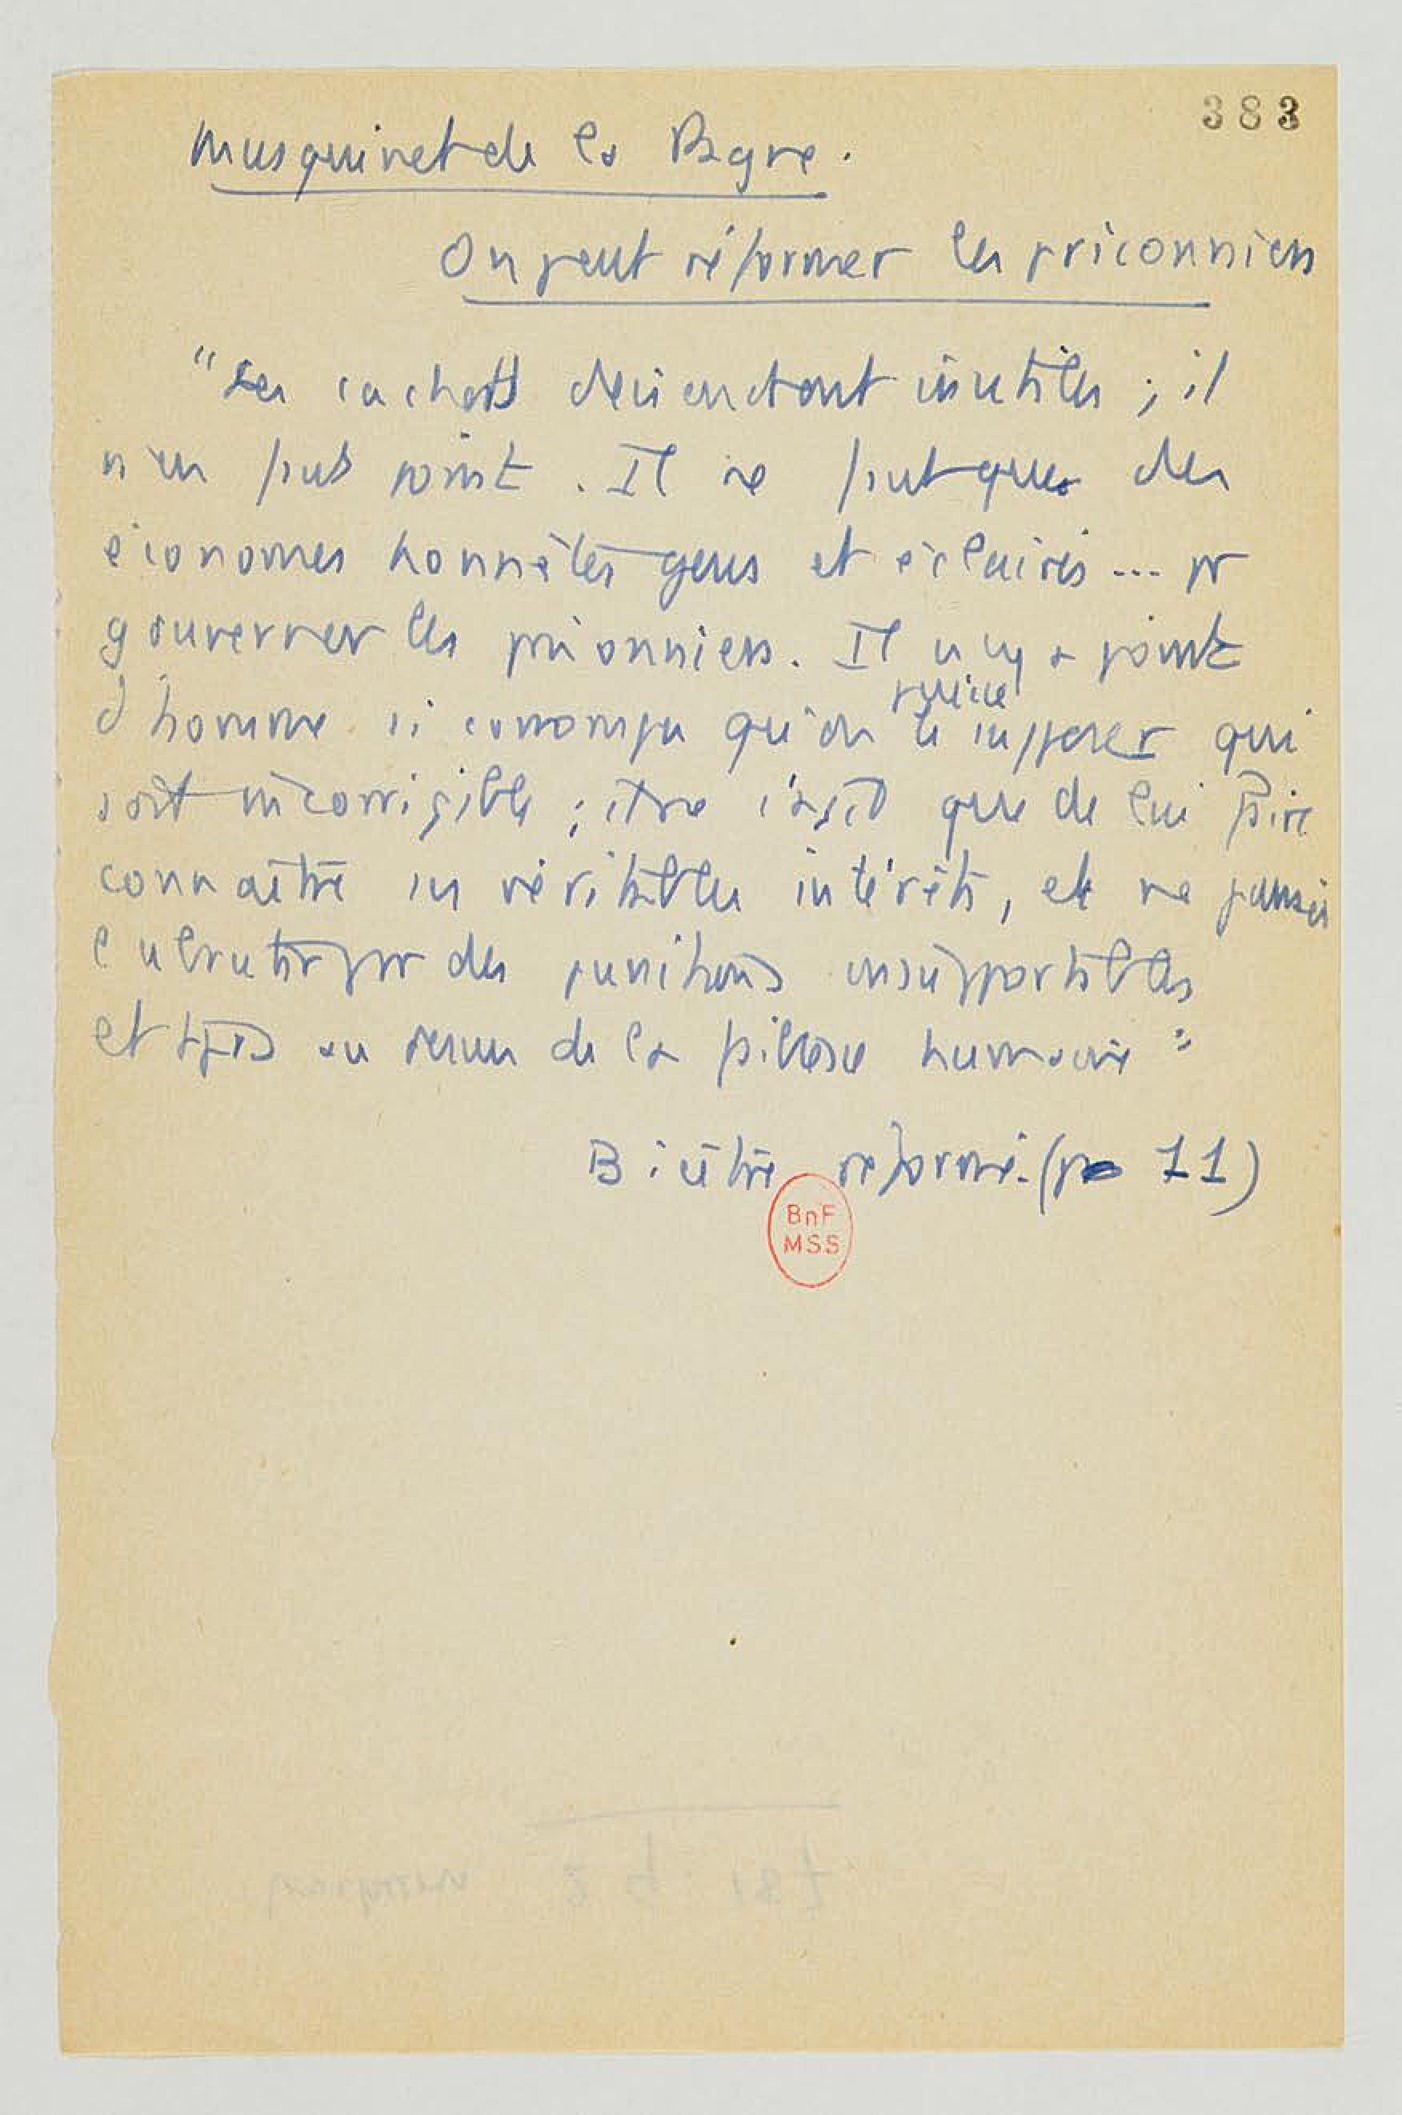 383
Musquinet de la Pagne.
On peut réformer les prisonniers
"Les cachots deviendront inutiles ; il
n'en faut point. Il ne faut que des
économes honnêtes gens et éclairés... pr
gouverner les prisonniers. Il n'y a point
d'homme si corrompu qu'on puisse le supposer qui
soit incorrigible ; il ne s'agit que de lui faire
connaître ses véritables intérêts, et ne jamais
l'abrutir par des punitions insupportables
et tjrs au dessus de la faiblesse humaine"
Bicêtre réformé. (p 11)
BnF
MSS